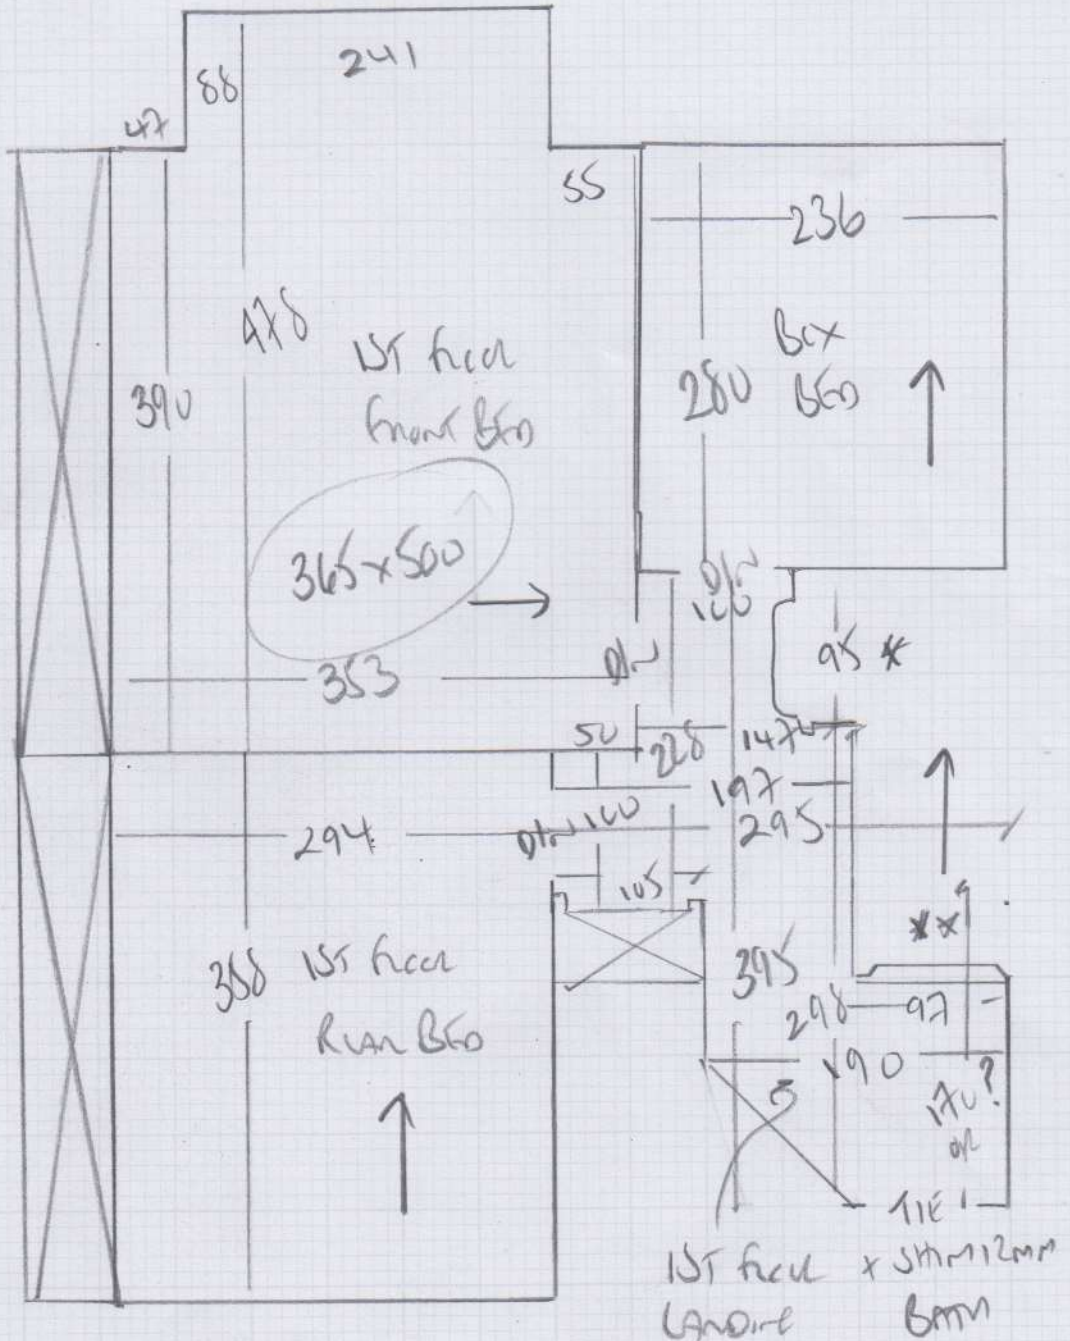 241
88
47
55
236
478
1ST Floor
Front BED
390
Box
BED
280
365 x 500
353
D/W
D/W
100
95 *
50
228
147
197
295
294
D/W 100
105
**
388
1ST Floor
Rear BED
395
298
97
190
3
170?
or
TIE
1ST Floor
Landing
x SHIM 12mm
BATH